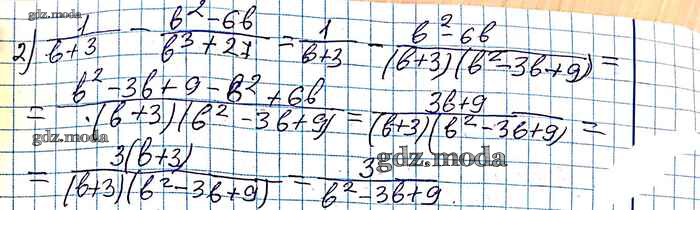 gdz.moda
2) 1/(b+3) - (b² - 6b)/(b³ + 27) = 1/(b+3) - (b² - 6b)/((b+3)(b² - 3b + 9)) =
= (b² - 3b + 9 - b² + 6b)/((b+3)(b² - 3b + 9)) = (3b + 9)/((b+3)(b² - 3b + 9)) =
gdz.moda
gdz.moda
= 3(b+3)/((b+3)(b² - 3b + 9)) = 3/(b² - 3b + 9).